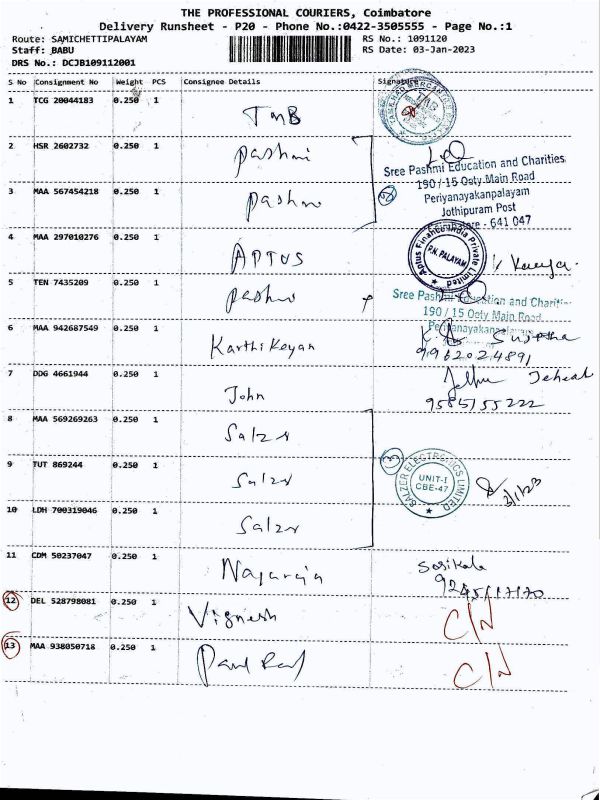 THE PROFESSIONAL COURIERS, Coimbatore
Delivery Runsheet - P20 - Phone No.:0422-3505555 - Page No.:1
Route: SAMICHETTIPALAYAM RS No.: 1091120
Staff: BABU RS Date: 03-Jan-2023
DRS No.: DCJB109112001
S No Consignment No Weight PCS Consignee Details Signature
1 TCG 20044183 0.250 1 TMB
2 HSR 2602732 0.250 1 Pashmi
Sree Pashmi Education and Charities
190 / 15 Ooty Main Road
3 MAA 567454218 0.250 1 Pashmi
Periyanayakanpalayam
Jothipuram Post
Coimbatore - 641 047
4 MAA 297010276 0.250 1 APTUS
Aptus Finance India Private Limited
P.N. PALAYAM
5 TEN 7435209 0.250 1 Pashmi
Sree Pashmi Education and Charities
190 / 15 Ooty Main Road
Periyanayakanpalayam
6 MAA 942687549 0.250 1 Karthikeyan
9962024891
7 DDG 4661944 0.250 1 John
9585155222
8 MAA 569269263 0.250 1 Salzer
9 TUT 869244 0.250 1 Salzer
3
SALZER ELECTRONICS LIMITED
UNIT-I
CBE-47
3/1/23
10 LDH 700319046 0.250 1 Salzer
11 CDM 50237047 0.250 1 Nagaraja Sasikala
9245117170
12 DEL 528798081 0.250 1 Vignesh C/N
13 MAA 938050718 0.250 1 Paul Raj C/N